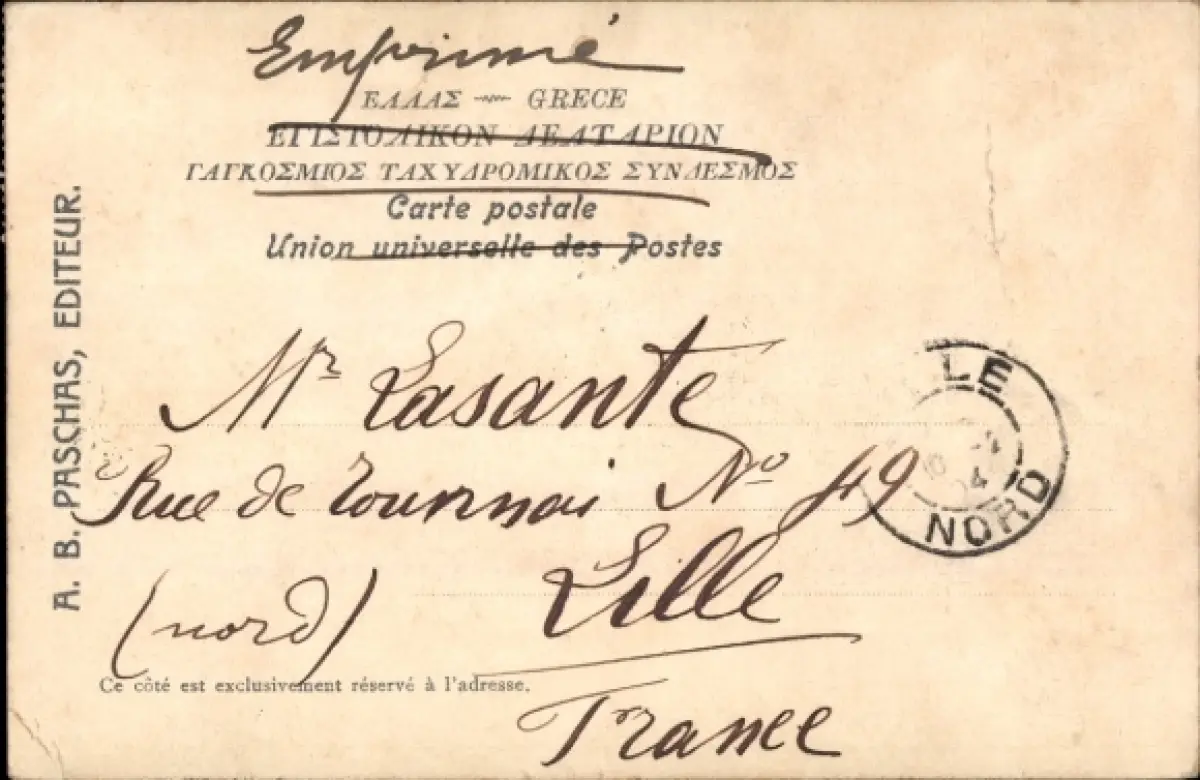 Emprimé
ΕΛΛΑΣ — GRECE
ΕΠΙΣΤΟΛΙΚΟΝ ΔΕΛΤΑΡΙΟΝ
ΠΑΓΚΟΣΜΙΟΣ ΤΑΧΥΔΡΟΜΙΚΟΣ ΣΥΝΔΕΣΜΟΣ
Carte postale
Union universelle des Postes
A. B. PASCHAS, EDITEUR.
Mr Lasante
Rue de Tournai No 49
Lille
(nord)
France
Ce côté est exclusivement réservé à l'adresse.
LE
04
NORD